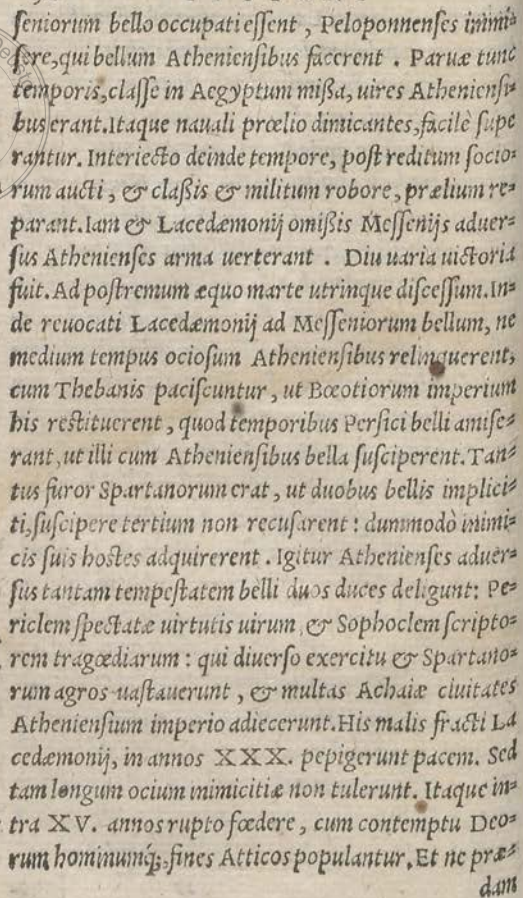 ſeniorum bello occupati eſſent, Peloponnenſes inimi⸗
ſere, qui bellum Athenienſibus facerent. Paruæ tunc
temporis, claſſe in Aegyptum mißa, uires Athenienſi⸗
bus erant. Itaque nauali prœlio dimicantes, facilè ſupe
rantur. Interiecto deinde tempore, poſt reditum ſocio⸗
rum aucti, & claßis & militum robore, prælium re⸗
parant. Iam & Lacedæmonij omißis Meſſenijs aduer⸗
ſus Athenienſes arma uerterant. Diu uaria uictoria
fuit. Ad poſtremum æquo marte utrinque diſceſſum. In⸗
de reuocati Lacedæmonij ad Meſſeniorum bellum, ne
medium tempus ocioſum Athenienſibus relinquerent,
cum Thebanis paciſcuntur, ut Bœotiorum imperium
his reſtituerent, quod temporibus Perſici belli amiſe⸗
rant, ut illi cum Athenienſibus bella ſuſciperent. Tan⸗
tus furor Spartanorum erat, ut duobus bellis implici⸗
ti, ſuſcipere tertium non recuſarent: dummodò inimi⸗
cis ſuis hoſtes adquirerent. Igitur Athenienſes aduer⸗
ſus tantam tempeſtatem belli duos duces deligunt: Pe⸗
riclem ſpectatæ uirtutis uirum, & Sophoclem ſcripto⸗
rem tragœdiarum: qui diuerſo exercitu & Spartano⸗
rum agros uaſtauerunt, & multas Achaiæ ciuitates
Athenienſium imperio adiecerunt. His malis fracti La
cedæmonij, in annos XXX. pepigerunt pacem. Sed
tam longum ocium inimicitiæ non tulerunt. Itaque in⸗
tra XV. annos rupto fœdere, cum contemptu Deo⸗
rum hominumq́;, fines Atticos populantur. Et ne præ⸗
dam